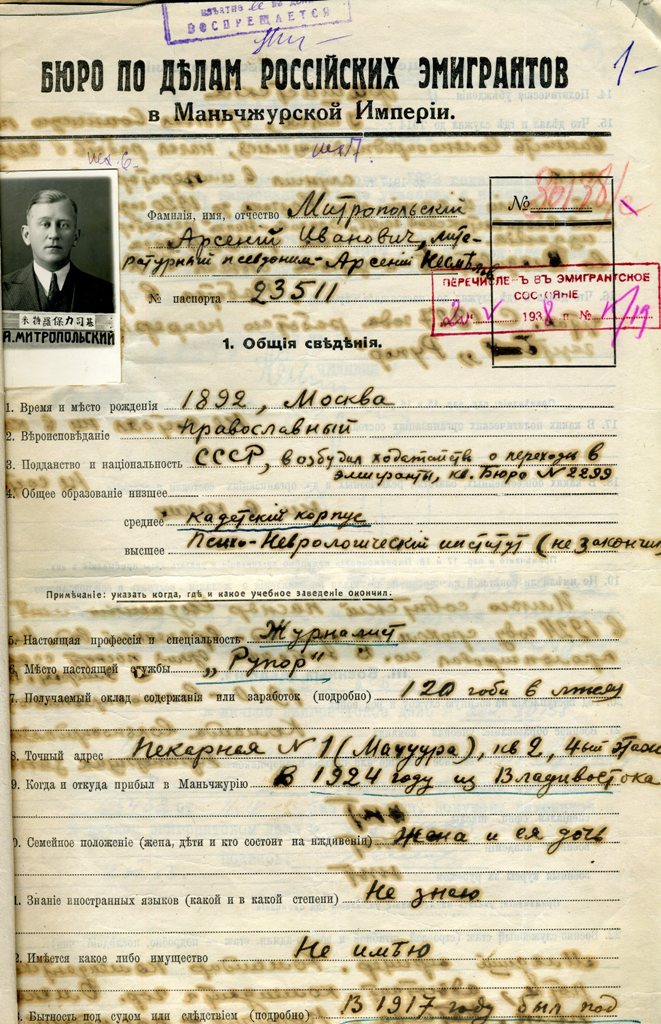 ВОСПРЕЩАЕТСЯ
1-
БЮРО ПО ДѢЛАМ РОССІЙСКИХ ЭМИГРАНТОВ
в Маньчжурской Имперіи.
Фамилія, имя, отчество Митропольскій
Арсеній Иванович, лите-
ратурный псевдоним - Арсеній Несмѣлов
№ паспорта 23511
№
ПЕРЕЧИСЛЕ-Ъ ВЪ ЭМИГРАНТСКОЕ
СОСТОЯНІЕ
193 8 г. №
А.МИТРОПОЛЬСКИЙ
1. Общія свѣдѣнія.
1. Время и мѣсто рожденія 1892, Москва
2. Вѣроисповѣданіе Православный
3. Подданство и національность СССР, возбудил ходатайств о переходѣ в
эмигранты, кв. Бюро N 2299
4. Общее образованіе низшее
среднее кадетскій корпус
высшее Психо-Неврологическій институт (не закончил
Примѣчаніе: указать когда, гдѣ и какое учебное заведеніе окончил.
5. Настоящая профессія и спеціальность Журналист
6. Мѣсто настоящей службы „Рупор"
7. Получаемый оклад содержанія или заработок (подробно) 120 гоби в мѣсяц
8. Точный адрес Пекарная N 1 (Мацуура), кв 2, 4ый этаж
9. Когда и откуда прибыл в Маньчжурію В 1924 году из Владивостока
0. Семейное положеніе (жена, дѣти и кто состоит на иждивеніи) Жена и ея дочь
1. Знаніе иностранных языков (какой и в какой степени) Не знаю
2. Имѣется какое либо имущество Не имѣю
3. Бытность под судом или слѣдствіем (подробно) В 1917 году был под